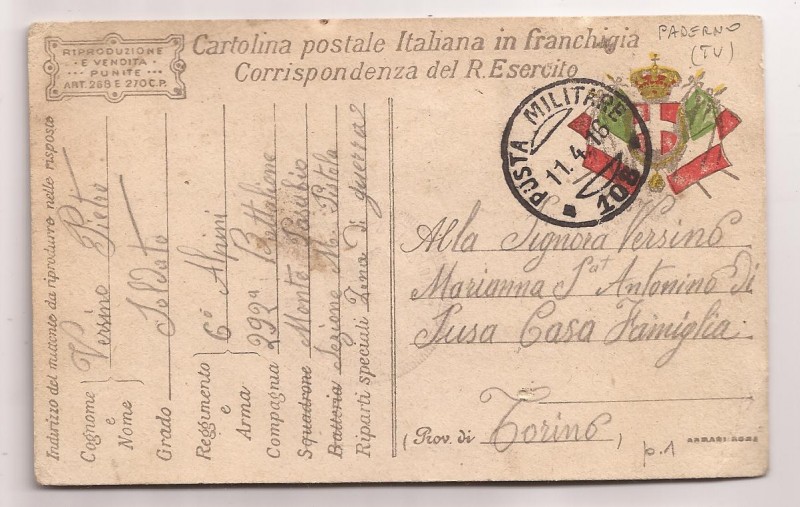 RIPRODUZIONE
E VENDITA
PUNITE
ART. 268 E 270 C.P.
Cartolina postale Italiana in franchigia
Corrispondenza del R. Esercito
PADERNO
(TV)
POSTA MILITARE
11.4.18
108
Indirizzo del mittente da riprodurre nelle risposte
Cognome e Nome Versino Pietro
Grado Soldato
Reggimento e Arma 6º Alpini
Compagnia 292a Battaglione
Squadrone Monte Pasubio
Batteria Sezione M. Pistola
Riparti speciali Zona di guerra
Alla Signora Versino
Marianna Sat Antonino di
Susa Casa Famiglia
(Prov. di Torino)
p. 1
ARMANI ROMA